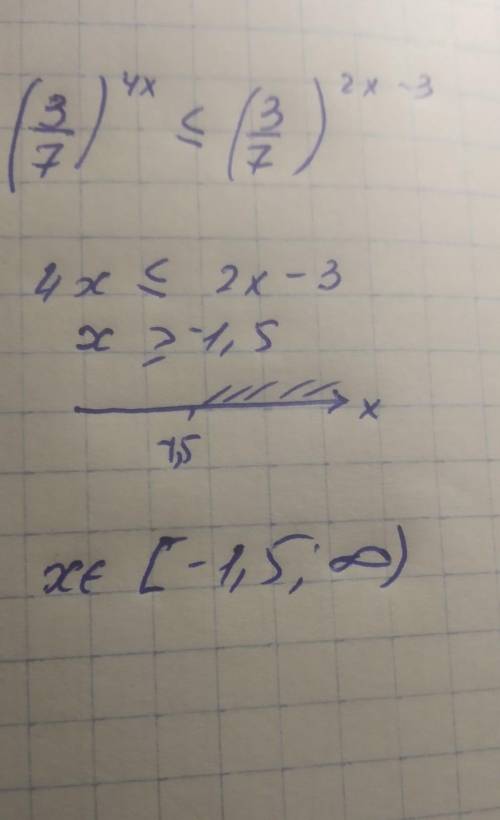 (3/7)^(4x) ≤ (3/7)^(2x-3)
4x ≤ 2x-3
x ≥ -1,5
x
-1,5
x∈ [-1,5; ∞)